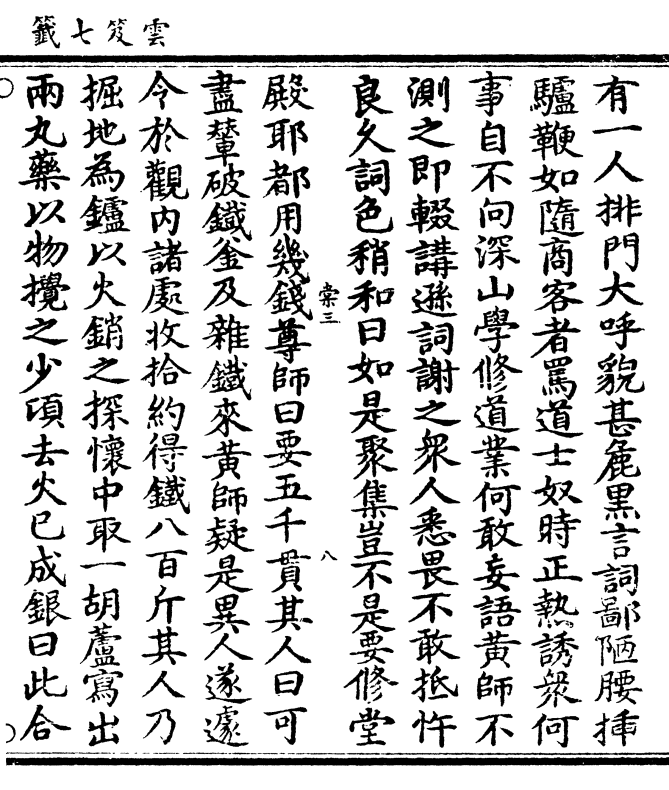 雲笈七籤
有一人排門大呼貌甚麁黒言詞鄙陋腰揷
驢鞭如隨商客者罵道士奴時正熱誘衆何
事自不向深山學修道業何敢妄語黄師不
測之即輟講遜詞謝之衆人悉畏不敢抵忤
良久詞色稍和曰如是聚集豈不是要修堂
棠三
八
殿耶都用幾錢尊師曰要五千貫其人曰可
盡輦破鐡釜及雜鐡來黄師疑是異人遂遽
令於觀内諸處收拾約得鐡八百斤其人乃
掘地為鑪以火銷之探懷中取一胡蘆寫出
兩丸藥以物攪之少頃去火已成銀曰此合